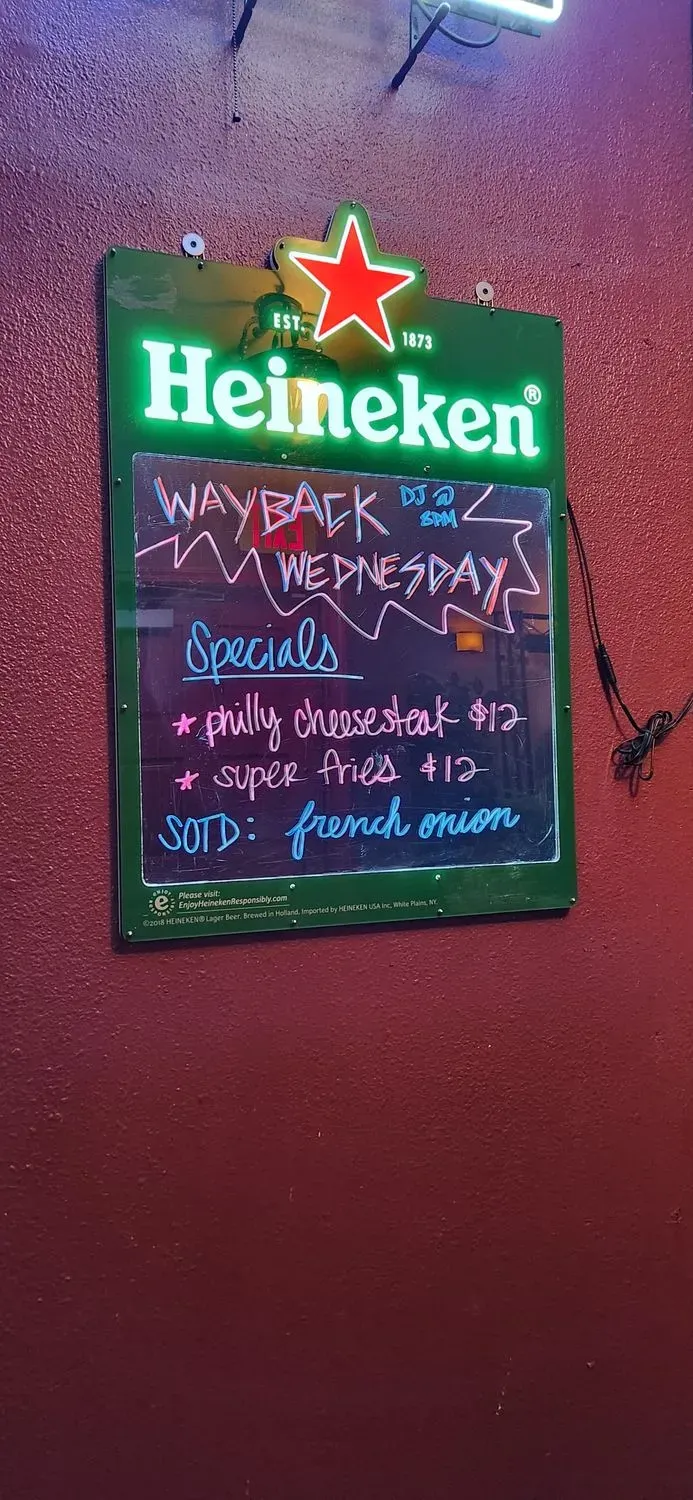 EST. 1873
Heineken®
WAYBACK DJ @
8PM
WEDNESDAY
Specials
* philly cheesesteak $12
* super fries $12
SOTD: french onion
ENJOY RESPONSIBLY
Please visit:
EnjoyHeinekenResponsibly.com
©2018 HEINEKEN® Lager Beer. Brewed in Holland. Imported by HEINEKEN USA Inc. White Plains, NY.